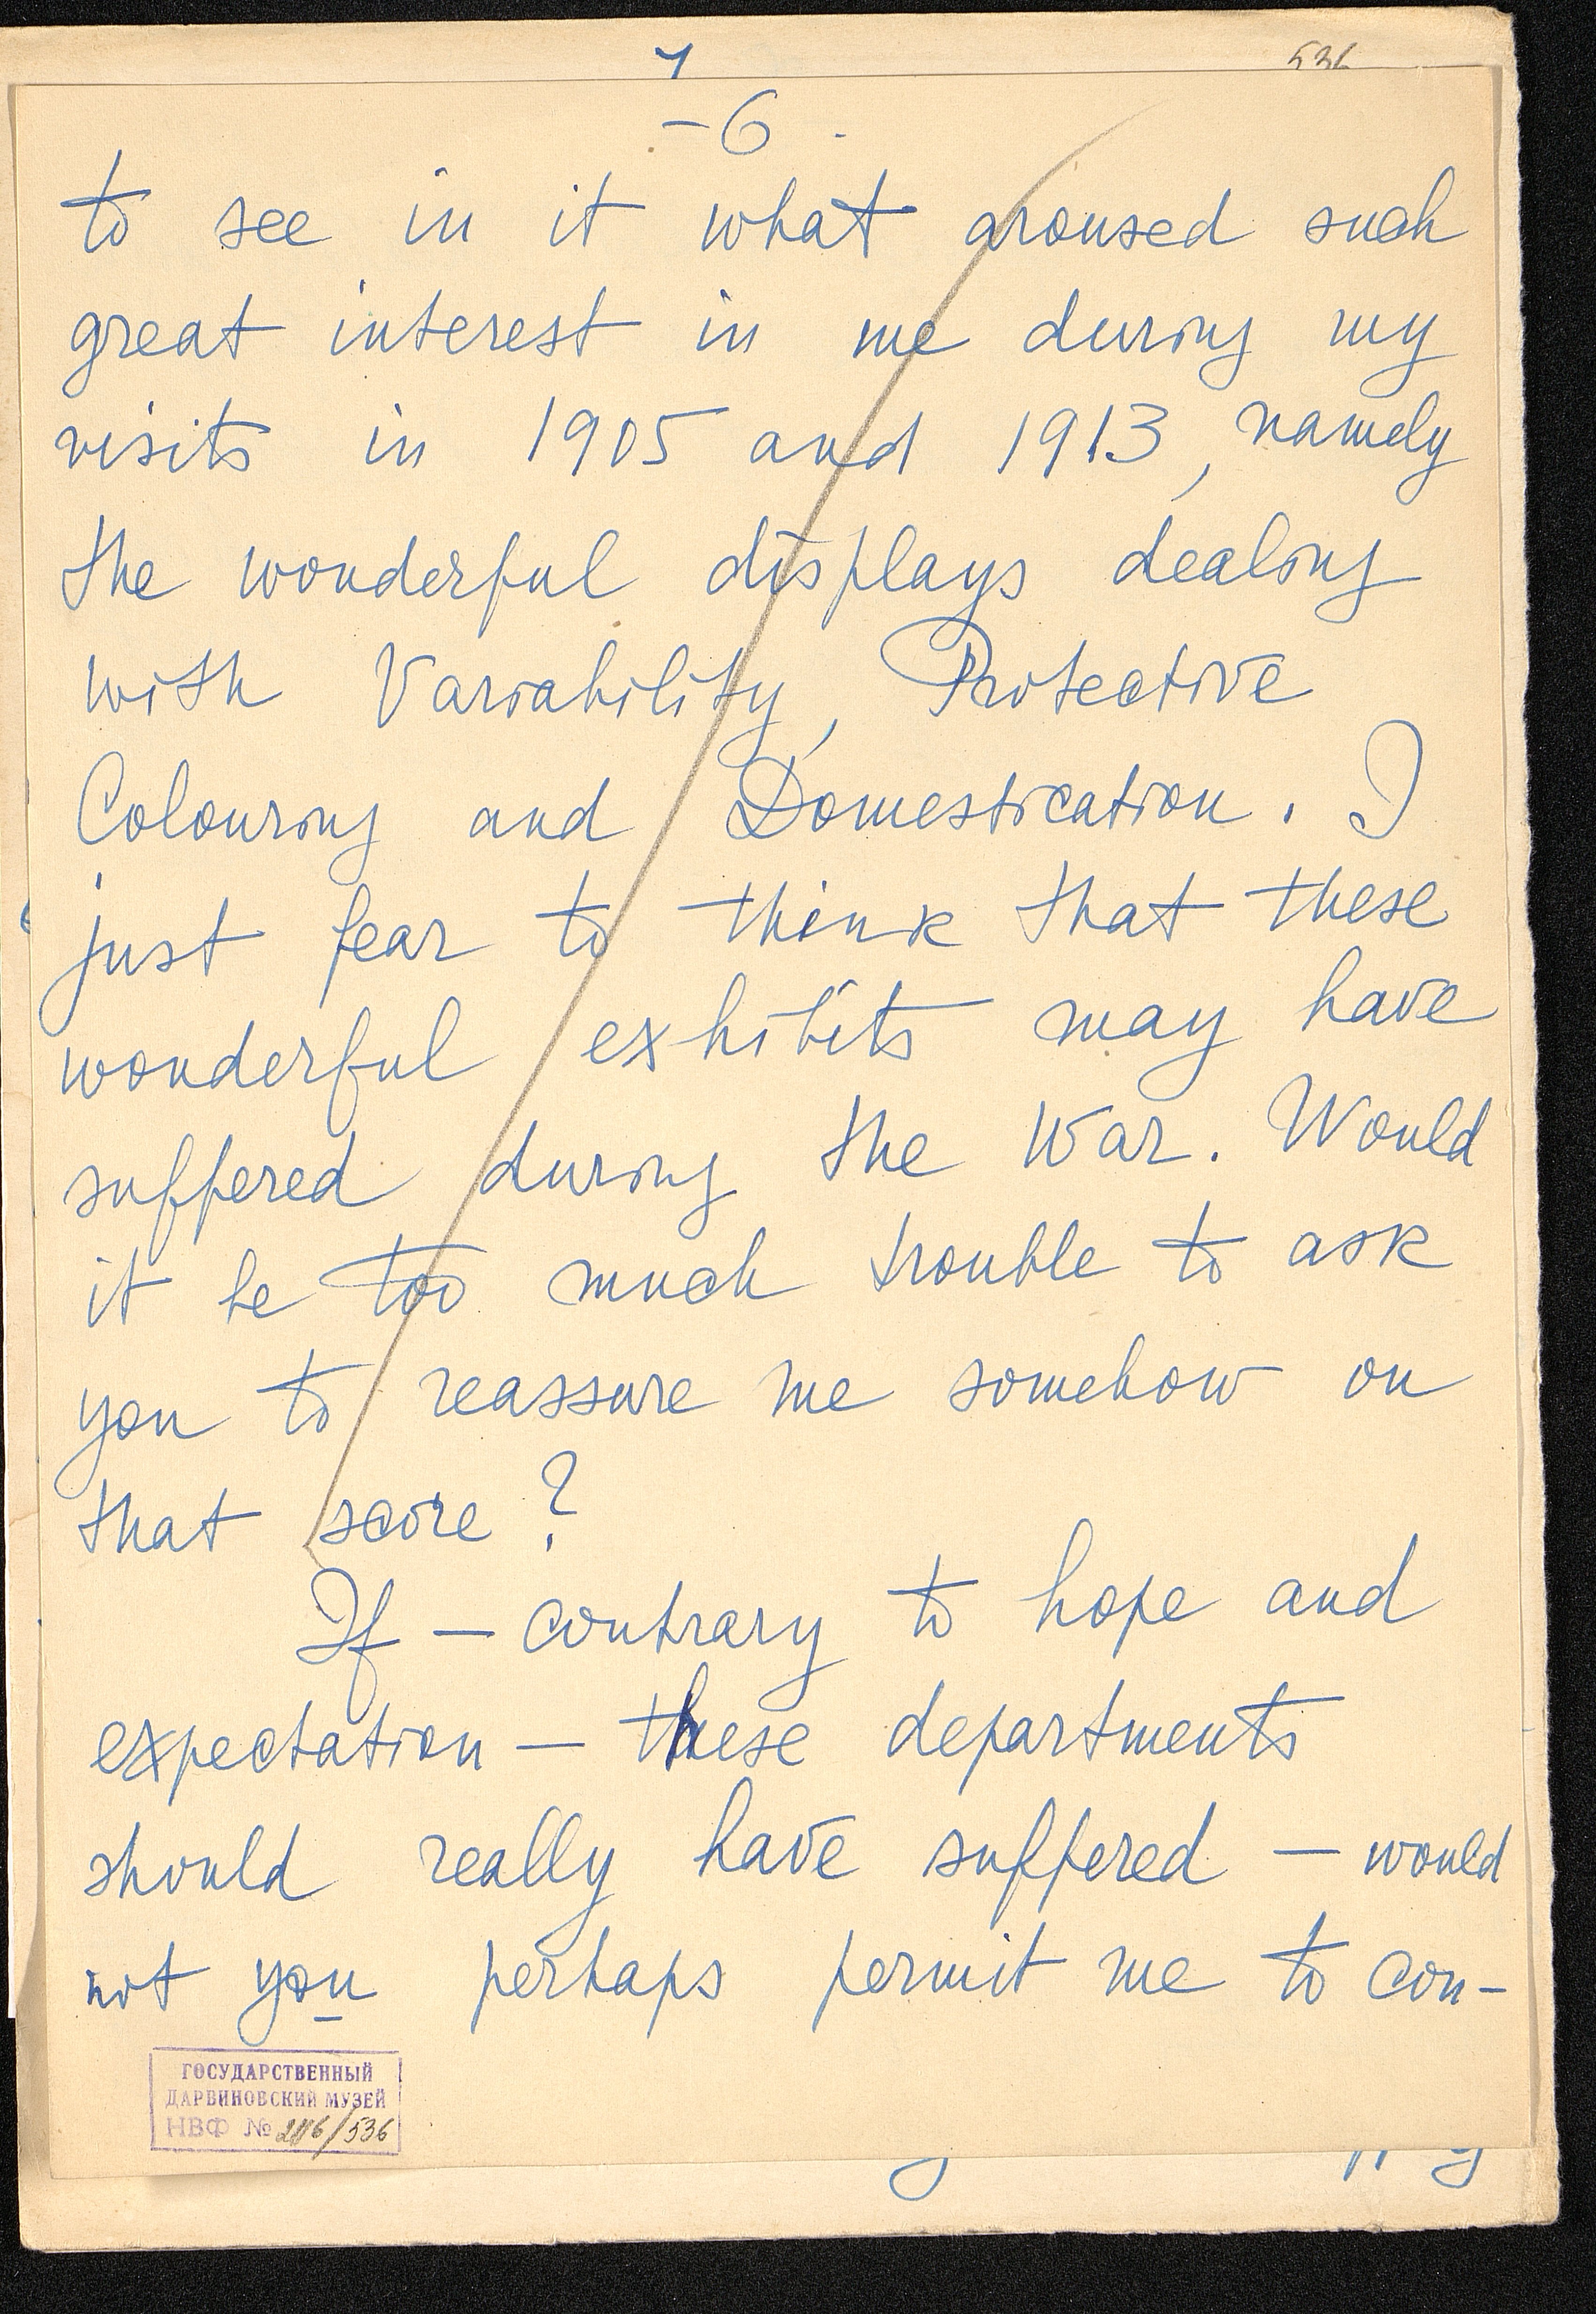 536
-6-
to see in it what aroused such
great interest in me during my
visits in 1905 and 1913, namely
the wonderful displays dealing
with Variability, Protective
Colouring and Domestication. I
just fear to think that these
wonderful exhibits may have
suffered during the War. Would
it be too much trouble to ask
you to reassure me somehow on
that score?
If — contrary to hope and
expectation — these departments
should really have suffered — would
not you perhaps permit me to con-
ГОСУДАРСТВЕННЫЙ
ДАРВИНОВСКИЙ МУЗЕЙ
НВФ № 2116/536